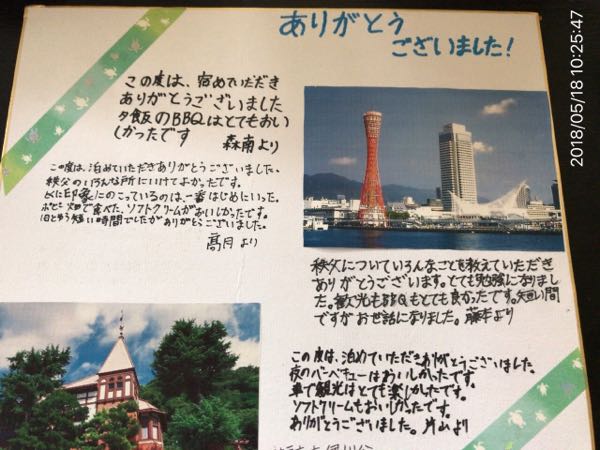 ありがとう
ございました!
この度は、宿めていただき
ありがとうございました
夕飯のBBQはとてもおい
しかったです
森南より
この度は、泊めていただきありがとうございました、
秩父のいろんな所にいけてよかったです。
とくに印象にのこっているのは一番はじめにいった。
ポピー畑で食べた、ソフトクリームがおいしかったです。
1日とゆう短い時間でしたがありがとうございました。
髙月より
秩父についていろんなことを教えていただき
ありがとうございます。とても勉強になりまし
た。観光もBBQもとても良かったです。短い間
ですがお世話になりました。藤本より
この度は、泊めていただきありがとうございました。
夜のバーベキューはおいしかったです。
車で観光はとても楽しかったです。
ソフトクリームもおいしかったです。
ありがとうございました。片山より
2018/05/18 10:25:47